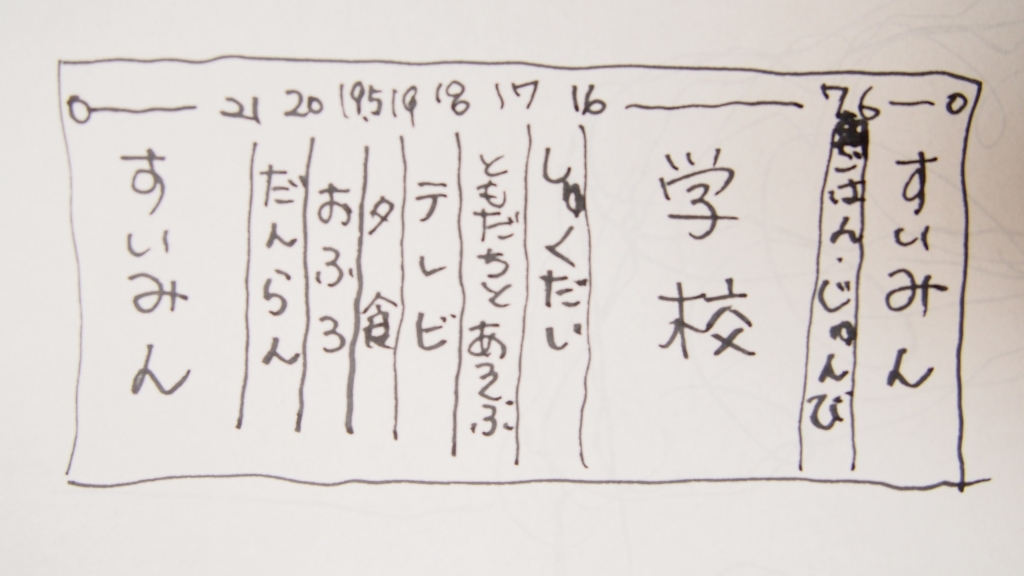 0 21 20 19.5 19 18 17 16 7 6 0
すいみん
ごはん・じゅんび
学校
しゅくだい
ともだちとあそぶ
テレビ
夕食
おふろ
だんらん
すいみん